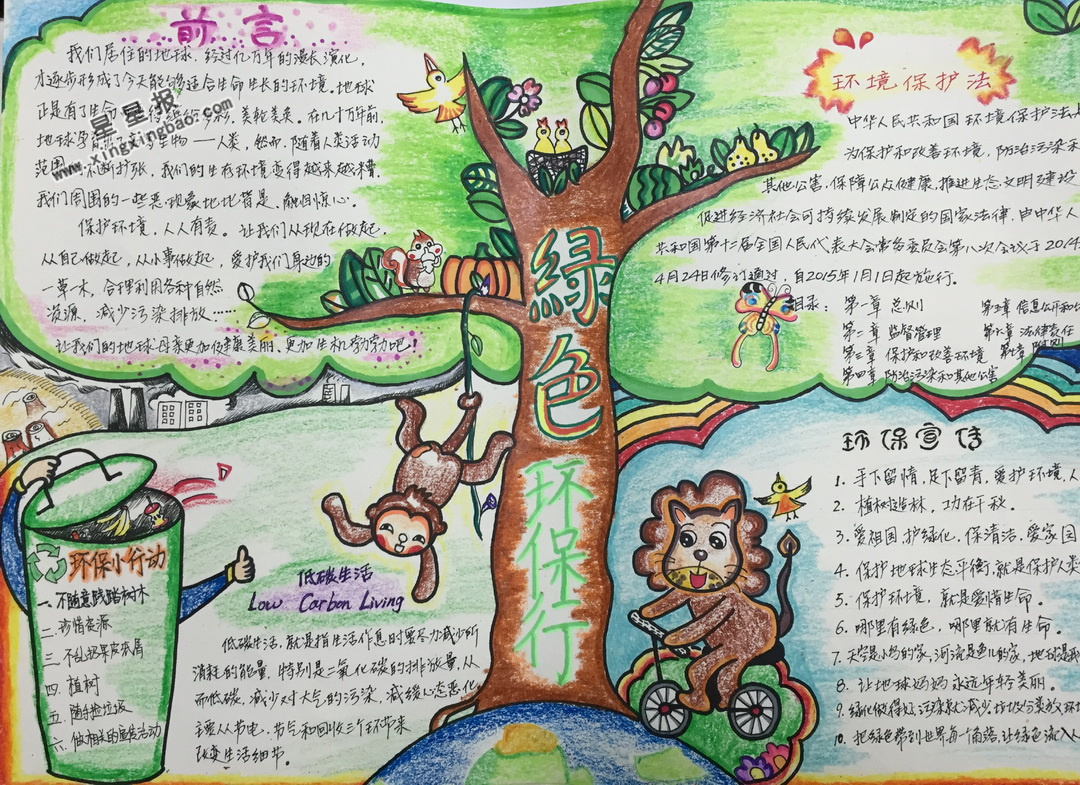 前言
我们居住的地球，经过亿万年的漫长演化，
才逐步形成了今天能够适合生命生长的环境。地球
正是有了生命 多彩，美轮美奂。在几十万年前，
地球孕 生物——人类，然而，随着人类活动
范围 不断扩张，我们的生存环境变得越来越糟，
我们周围的一些恶现爱地地皆是，触目惊心。
保护环境，人人有责。让我们从现在做起，
从自己做起，从小事做起，爱护我们身边的
一草一木，合理利用各种自然
资源，减少污染排放……
让我们的地球母亲更加健康美丽、更加生机勃勃吧！
星星报
www.xingxingbao.com
环境保护法
中华人民共和国环境保护法是
为保护和改善环境，防治污染和
其他公害，保障公众健康，推进生态文明建设
促进经济社会可持续发展制定的国家法律，由中华人
共和国第十二届全国人民代表大会常务委员会第八次会议于2014
4月24日修订通过，自2015年1月1日起施行。
目录：第一章 总则 第五章 信息公开和
第二章 监督管理 第六章 法律责任
第三章 保护和改善环境 第七章 附则
第四章 防治污染和其他公害
綠色环保行
环保小行动
一.不随意践踏树木
二.珍惜资源
三.不乱扔果皮纸屑
四.植树
五.随手捡垃圾
六.做相关的宣传活动
低碳生活
Low Carbon Living
低碳生活，就是指生活作息时要尽力减少所
消耗的能量，特别是二氧化碳的排放量，从
而低碳，减少对大气的污染，减缓生态恶化，
主要从节电、节气和回收三个环节来
改变生活细节。
环保宣传
1. 手下留情，足下留青，爱护环境，人
2. 植树造林，功在千秋。
3. 爱祖国 护绿化，保清洁，爱家园
4. 保护地球生态平衡，就是保护人类
5. 保护环境，就是爱惜生命。
6. 哪里有绿色，哪里就有生命。
7. 天空是小鸟的家，河流是鱼儿的家，地球是我
8. 让地球妈妈永远年轻美丽。
9. 绿化做得好，污染就减少，垃圾分类放，环境
10. 把绿色带到世界每一角落，让绿色流入人